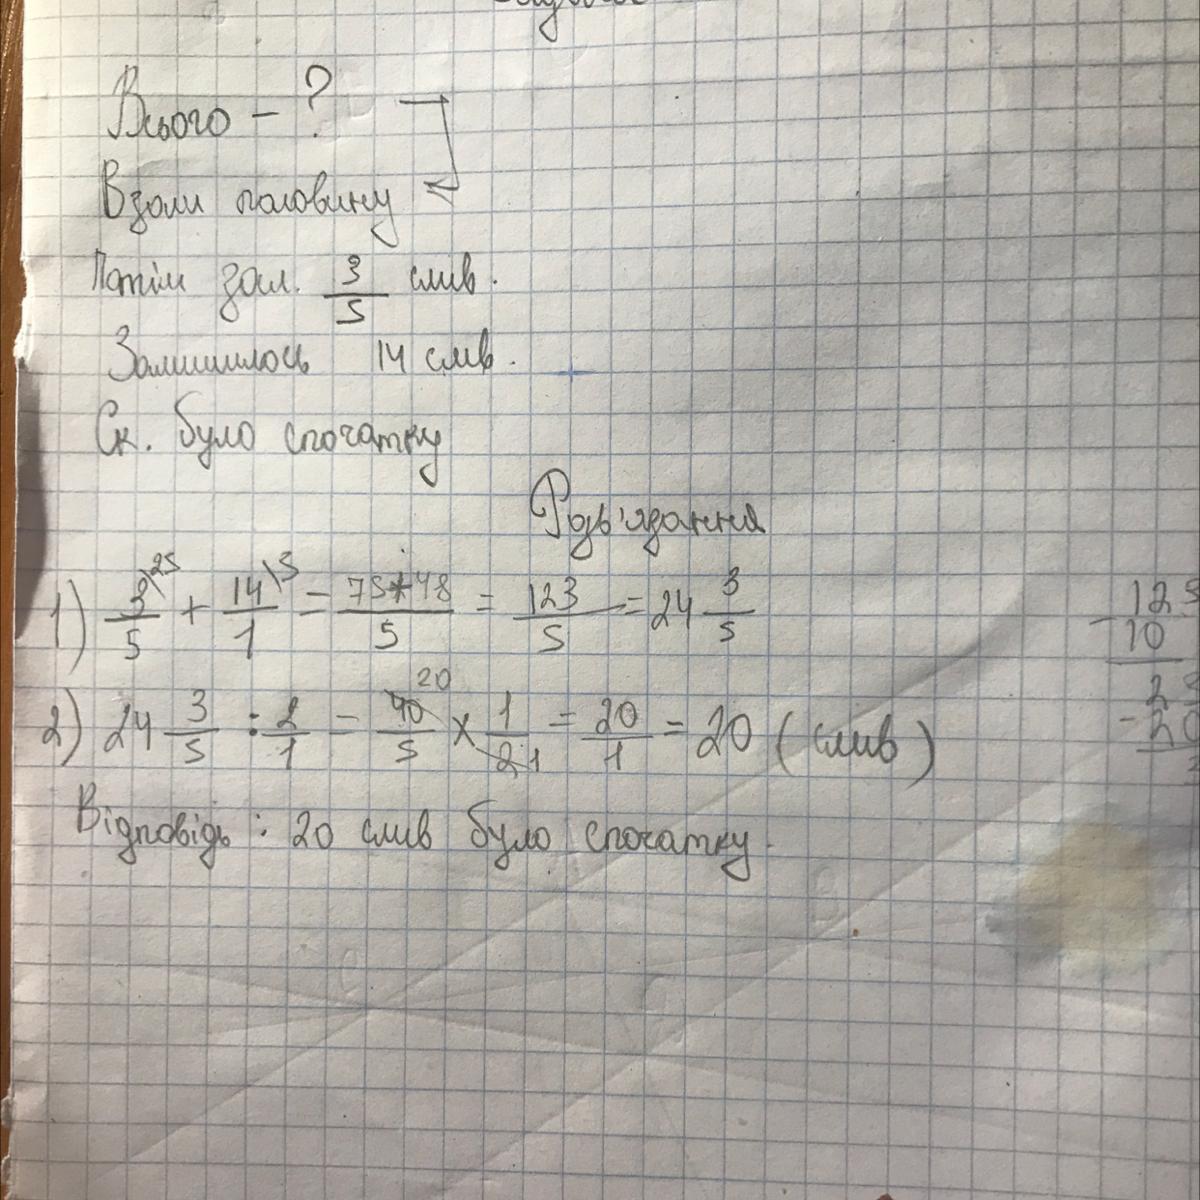 Всього - ?
Взяли половину
Потім зал. 3/5 слив.
Залишилось 14 слив.
Ск. було спочатку
Розв'язання
1) 3\25/5 + 14\3/1 = 75+48/5 = 123/5 = 24 3/5
2) 24 3/5 : 2/1 = 40 20/5 × 1/2 1 = 20/1 = 20 (слив)
Відповідь: 20 слив було спочатку.